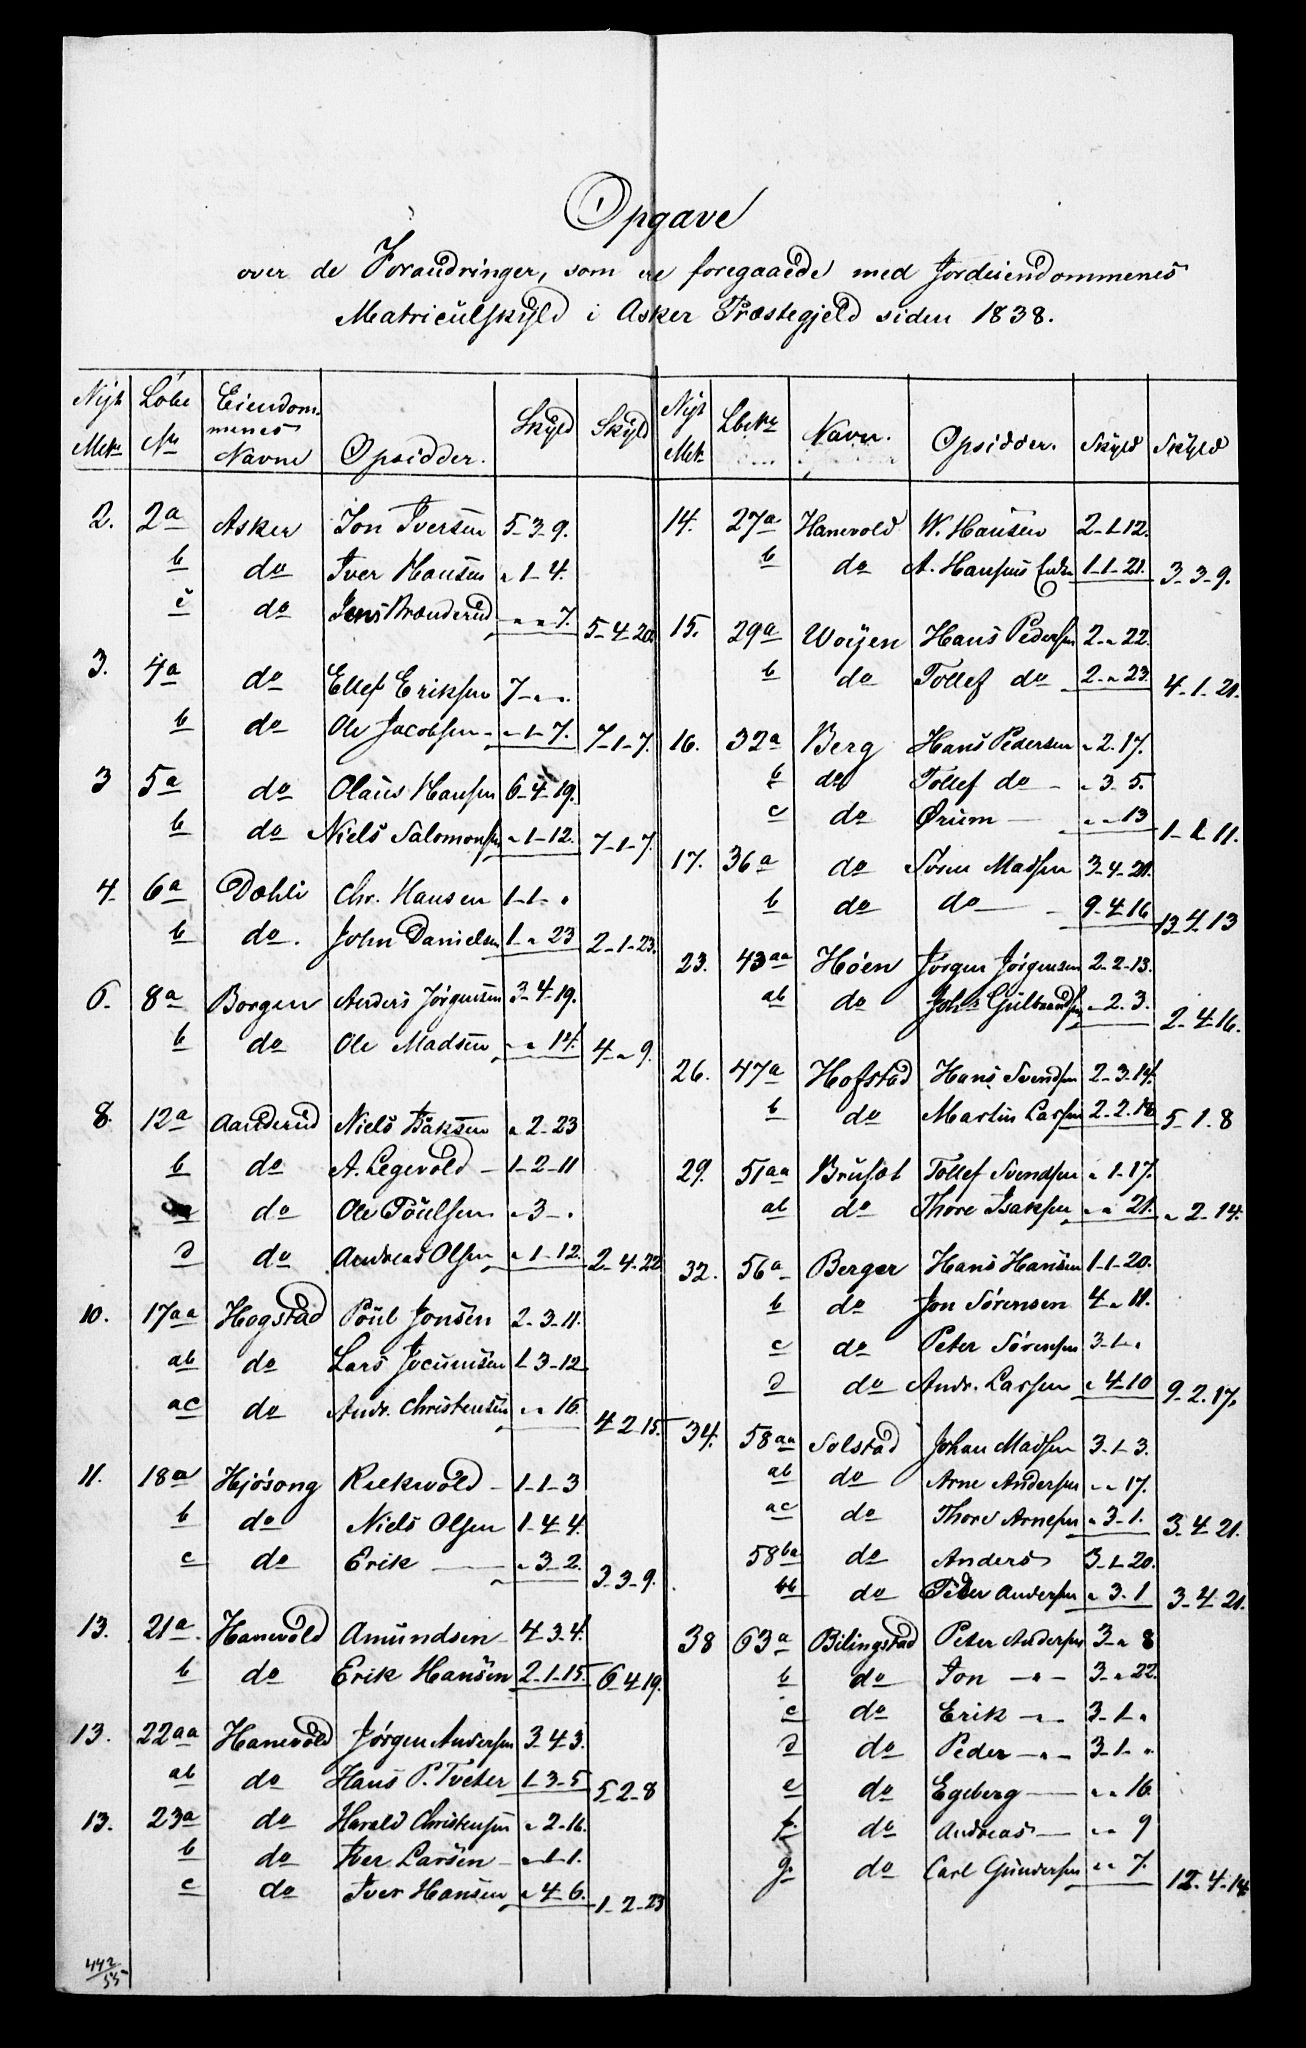 Opgave
over de Forandringer, som ere foregaaede med Jordeiendommenes
Matriculskyld i Asker Præstegjeld siden 1838.
Nyt Mat. | Løbe No | Eiendommenes Navne | Opsidder. | Skyld | Skyld
2. 2a Asker Jon Iversen 5-3-9.
b do Iver Hansen " 1-4.
c do Jens Brænderud " " 7. 5-4-20.
3. 4a do Ellef Eriksen 7 - " - "
b do Ole Jacobsen - " 1-7. 7-1-7.
3 5a do Olaus Hansen 6-4-19.
b do Niels Salomonsen " 1-12. 7-1-7.
4. 6a Dæhli Chr. Hansen 1-1- "
b do. John Danielsen 1 " 23 2-1-23.
6. 8a Borgen Anders Jørgensen 3-4-19.
b do Ole Madsen " " 14. 4 " 9.
8. 12a Aanderud Niels Isaksen " 2-23
b do A. Legevold - 1-2-11
do Ole Poulsen " 3 - "
d do Andreas Olsen " 1-12. 2-4-22
10. 17aa Hogstad Poul Jonsen 2-3-11.
ab do Lars Jocumsen 1-3-12
ac do Andr. Christensen " " 16. 4-2-15.
11. 18a Hjøsong Reekvold - 1-1-3
b do Niels Olsen 1-4-4.
c do Erik " 3-2. 3-3-9.
13. 21a Hanevold Amundsen 4-3-4.
b do Erik Hansen 2-1-15. 6-4-19.
13. 22aa Hanevold Jørgen Andersen 3-4-3.
ab do Hans P. Tveter 1-3-5 5-2-8
13. 23a do Harald Christensen " 2-16.
b do Iver Larsen " 1-1.
c do Iver Hansen " 4-6. 1-2-23
442/55
Nyt Mat. | Lbe No | Navn. | Opsidder. | Skyld | Skyld
14. 27a Hanevold W. Hansen 2-1-12.
b do A. Hansens Enke 1-1-21. 3-3-9.
15. 29a Woyen Hans Pedersen 2 " 22.
b do Tollef do 2 " 23. 4-1-21.
16. 32a Berg Hans Pedersen " 2-17.
b do Tollef do - " 3-5.
c do Ørum " " 13 1-1-11.
17. 36a do Søren Madsen 3-4-21.
b do do 9-4-16 13-4-13
23. 43aa Høen Jørgen Jørgensen 2-2-13.
ab do Johs Gulbrandsen " 2-3. 2-4-16.
26. 47a Hofstad Hans Svendsen 2-3-14.
b do Martin Larsen 2-2-18 5-1-8
29. 51aa Brusæt Tollef Svendsen " 1-17.
ab do Thore Isaksen " " 21. " 2-14.
32. 56a Berger Hans Hansen 1-1-20.
b do Jon Sørensen 4 " 11.
c do Peter Sørensen 3-1- "
d do Andr. Larsen " 4-10 9-2-17.
34. 58aa Solstad Johan Madsen 3-1-3.
ab do Arne Andersen " " 17.
ac do Thore Arnesen " 3-1. 3-4-21.
58ba do Anders 3-1-20.
bb do Peder Andersen " 3-1 3-4-21.
38 63a Bilingstad Peter Andersen 3 " 8
b do Jon - " - 3 " 22.
c do Erik - " - 3-1- "
d do Peder - " - 3-1- "
e do Egeberg " " 16.
f do Andreas " " 9
g. do Carl Gundersen " " 7. 12-4-14